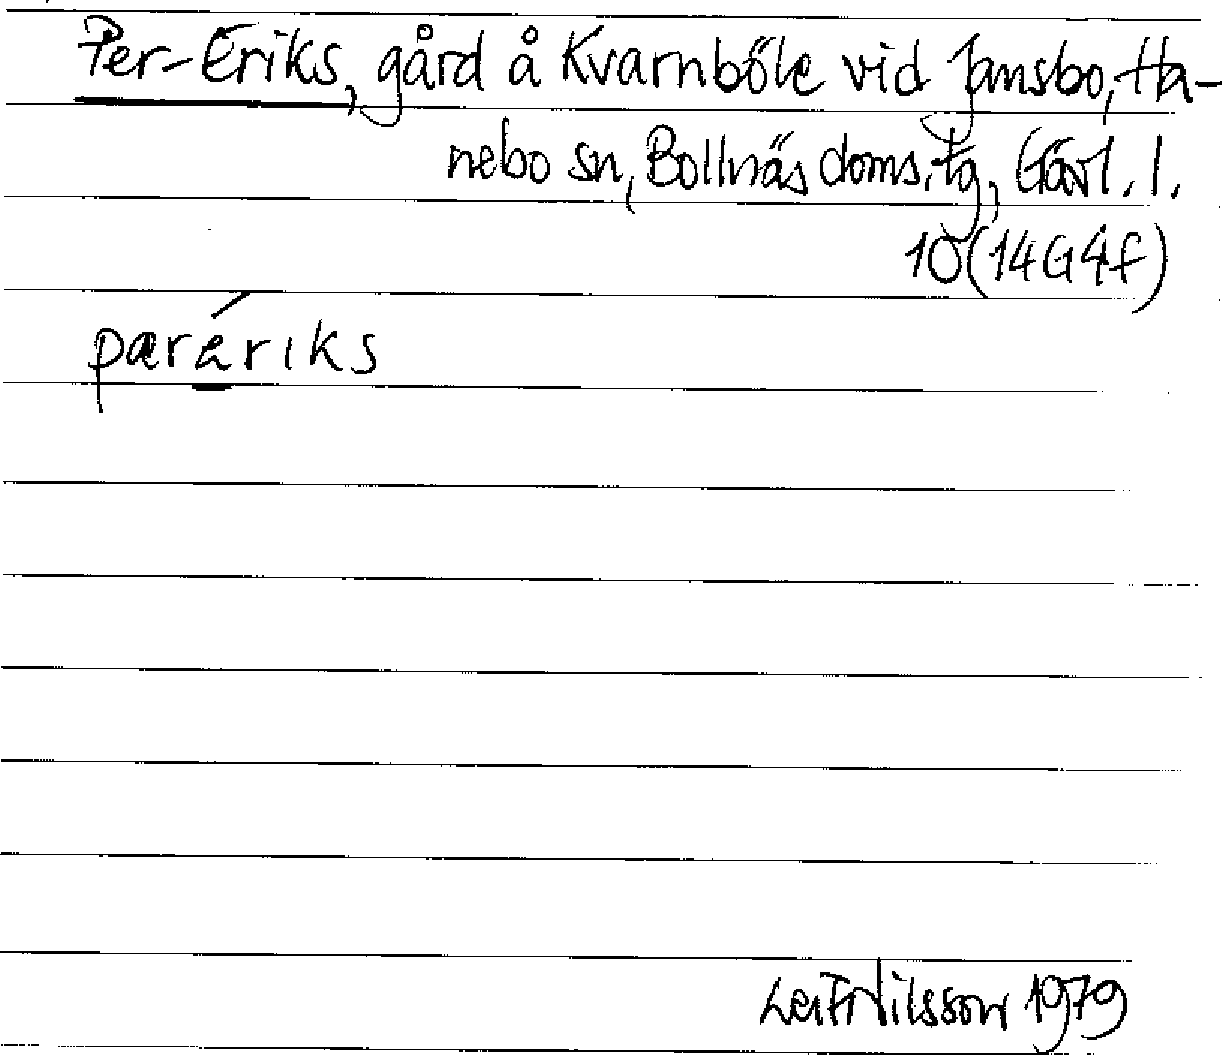 Per-Eriks, gård å Kvarnböle vid Jansbo, Ha-
nebo sn, Bollnäs doms. tg, Gävl. l.
10 (14G4f)
pæráriks
Leif Nilsson 1979